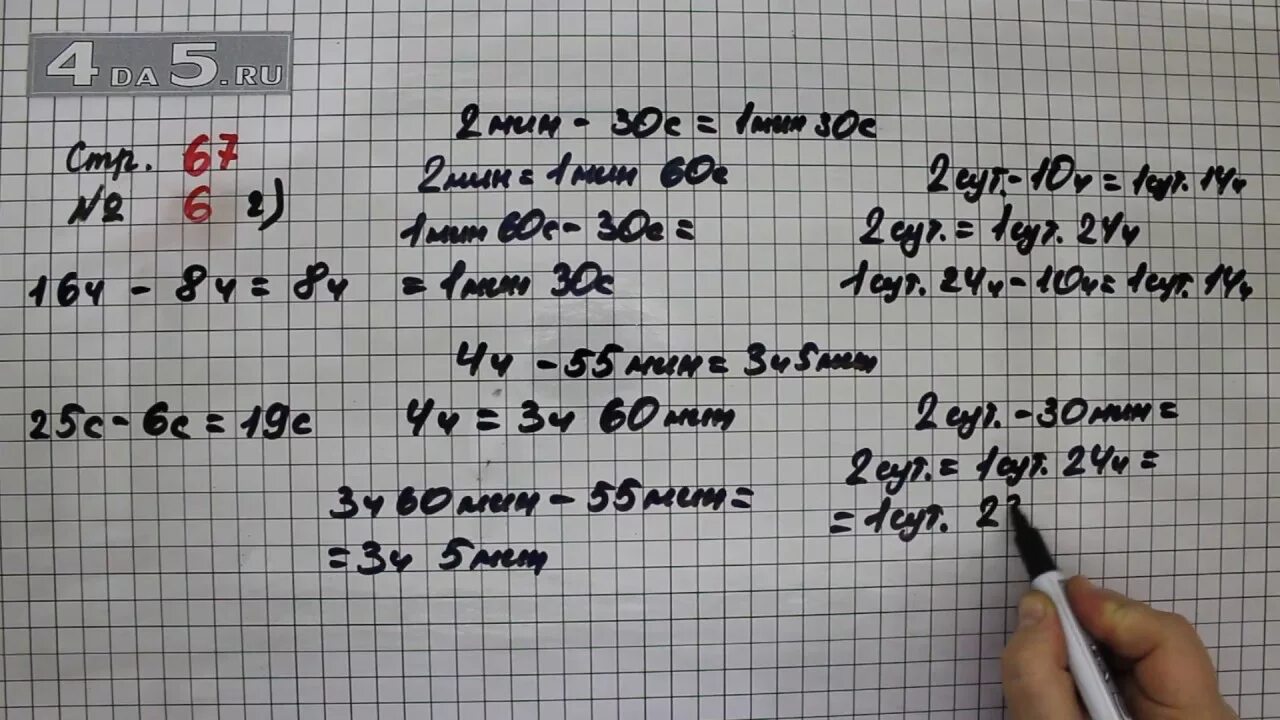 4DA5.RU
Стр. 67
№ 6 2)
16ч - 8ч = 8ч
25с - 6с = 19с
2мин - 30с = 1мин 30с
2мин = 1мин 60с
1мин 60с - 30с =
= 1мин 30с
4ч - 55мин = 3ч 5мин
4ч = 3ч 60мин
3ч 60мин - 55мин =
= 3ч 5мин
2сут. - 10ч = 1сут. 14ч
2сут. = 1сут. 24ч
1сут. 24ч - 10ч = 1сут. 14ч
2сут. - 30мин =
2сут. = 1сут. 24ч =
= 1сут. 2